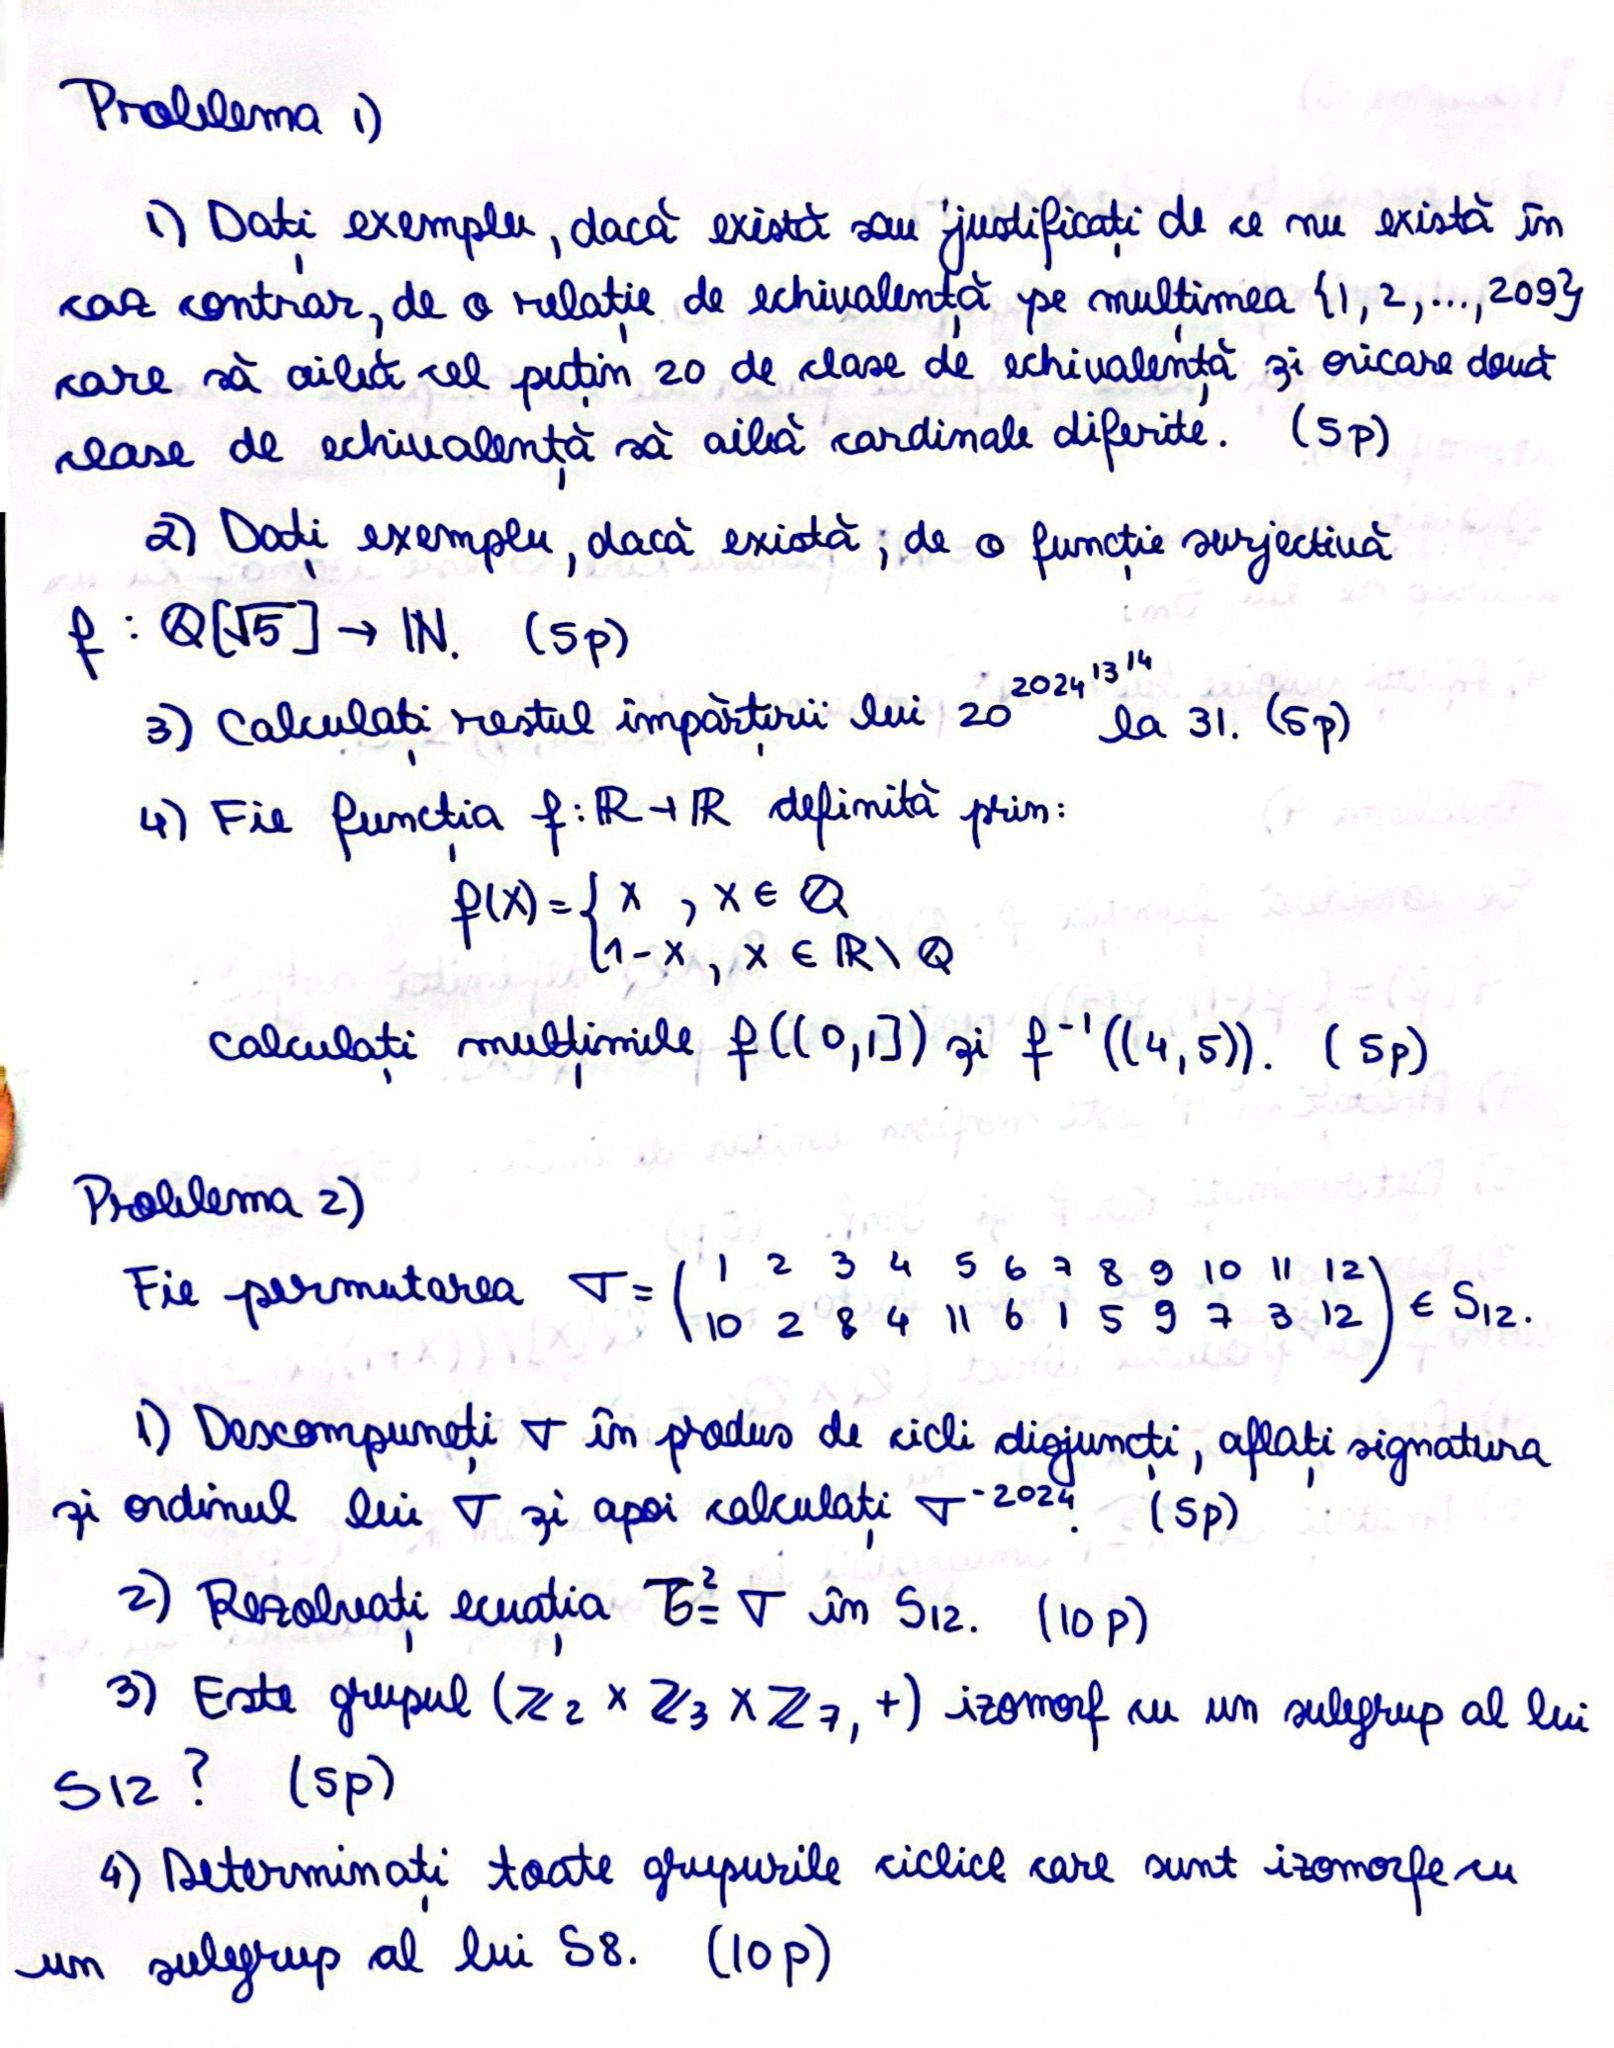 Problema 1)
1) Dați exemplu, dacă există sau justificați de ce nu există în
caz contrar, de o relație de echivalență pe mulțimea {1, 2, ..., 209}
care să aibă cel puțin 20 de clase de echivalență și oricare două
clase de echivalență să aibă cardinale diferite. (5p)
2) Dați exemplu, dacă există, de o funcție surjectivă
f : ℚ[√5] → ℕ. (5p)
3) Calculați restul împărțirii lui 20^2024^13^14 la 31. (5p)
4) Fie funcția f: ℝ → ℝ definită prin:
f(x) = { x , x ∈ ℚ
1-x , x ∈ ℝ \ ℚ
Calculați mulțimile f((0,1]) și f⁻¹((4,5)). (5p)
Problema 2)
Fie permutarea σ = ( 1 2 3 4 5 6 7 8 9 10 11 12
10 2 8 4 11 6 1 5 9 7 3 12 ) ∈ S12.
1) Descompuneți σ în produs de cicli disjuncți, aflați signatura
și ordinul lui σ și apoi calculați σ^-2024. (5p)
2) Rezolvați ecuația τ² = σ în S12. (10p)
3) Este grupul (ℤ2 × ℤ3 × ℤ7, +) izomorf cu un subgrup al lui
S12 ? (5p)
4) Determinați toate grupurile ciclice care sunt izomorfe cu
un subgrup al lui S8. (10p)